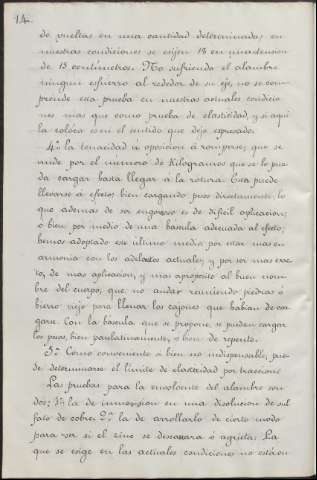 14.
de vueltas en una cantidad determinada; en
nuestras condiciones se exijen 18 en una tension
de 15 centimetros. No sufriendo el alambre
ningun esfuerzo al rededor de su eje, no se com-
prende esta prueba en nuestras actuales condicio-
nes mas que como prueba de elasticidad, y si aqui
la coloco es en el sentido que dejo espresado.
4.º la tenacidad ú oposicion á romperse, que se
mide por el número de Kilogramos que se le pue-
da cargar hasta llegar á la rotura. Esta puede
llevarse á efecto; bien cargando pesos directamente, lo
que ademas de ser engorroso es de dificil aplicacion;
ó bien por medio de una báscula adecuada al efecto;
hemos adoptado este último medio por estar mas en
armonia con los adelantos actuales, y por ser mas exac-
to, de mas aplicacion, y mas apropósito al buen nom-
bre del cuerpo, que no andar reuniendo piedras ó
hierro viejo para llenar los cajones que habian de car-
garse. Con la báscula que se propone, se pueden cargar
los pesos, bien paulatinamente, ó bien de repente.
5.º Como conveniente si bien no indispensable, pue-
de determinarse el límite de elasticidad por traccion.
Las pruebas para la envolvente del alambre son
dos; 1.ª la de inmersion en una disolucion de sul-
fato de cobre: 2.ª la de arrollarlo de cierto modo
para ver si el zinc se desazara ó agrieta. La
que se exige en las actuales condiciones no está en